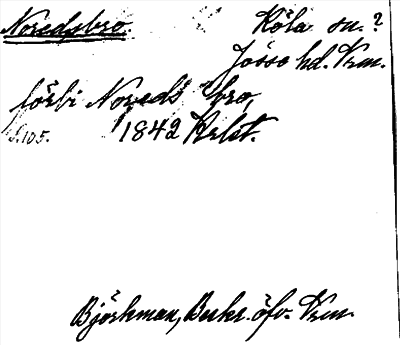 Noredsbro. Köla sn.?
Jösse hd. Vrm.
förbi Noreds bro,
s. 105. 1842 Krlst.
Björkman, Beskr. öfv. Vrm.